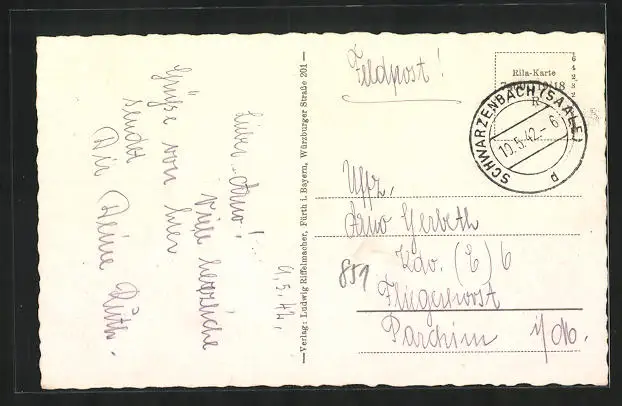 9.5.42.
Lieber Arno!
Viele herzliche
Grüße von hier
sendet
Dir Deine Ruth.
—Verlag: Ludwig Riffelmacher, Fürth i. Bayern, Würzburger Straße 201—
Feldpost!
Rila-Karte
64232
SCHWARZENBACH (SAALE)
10.5.42.-6
d
Uffz.
Arno Gerbeth
Kdo. (E) 6
851
Fliegerhorst
Parchim i/Mo.